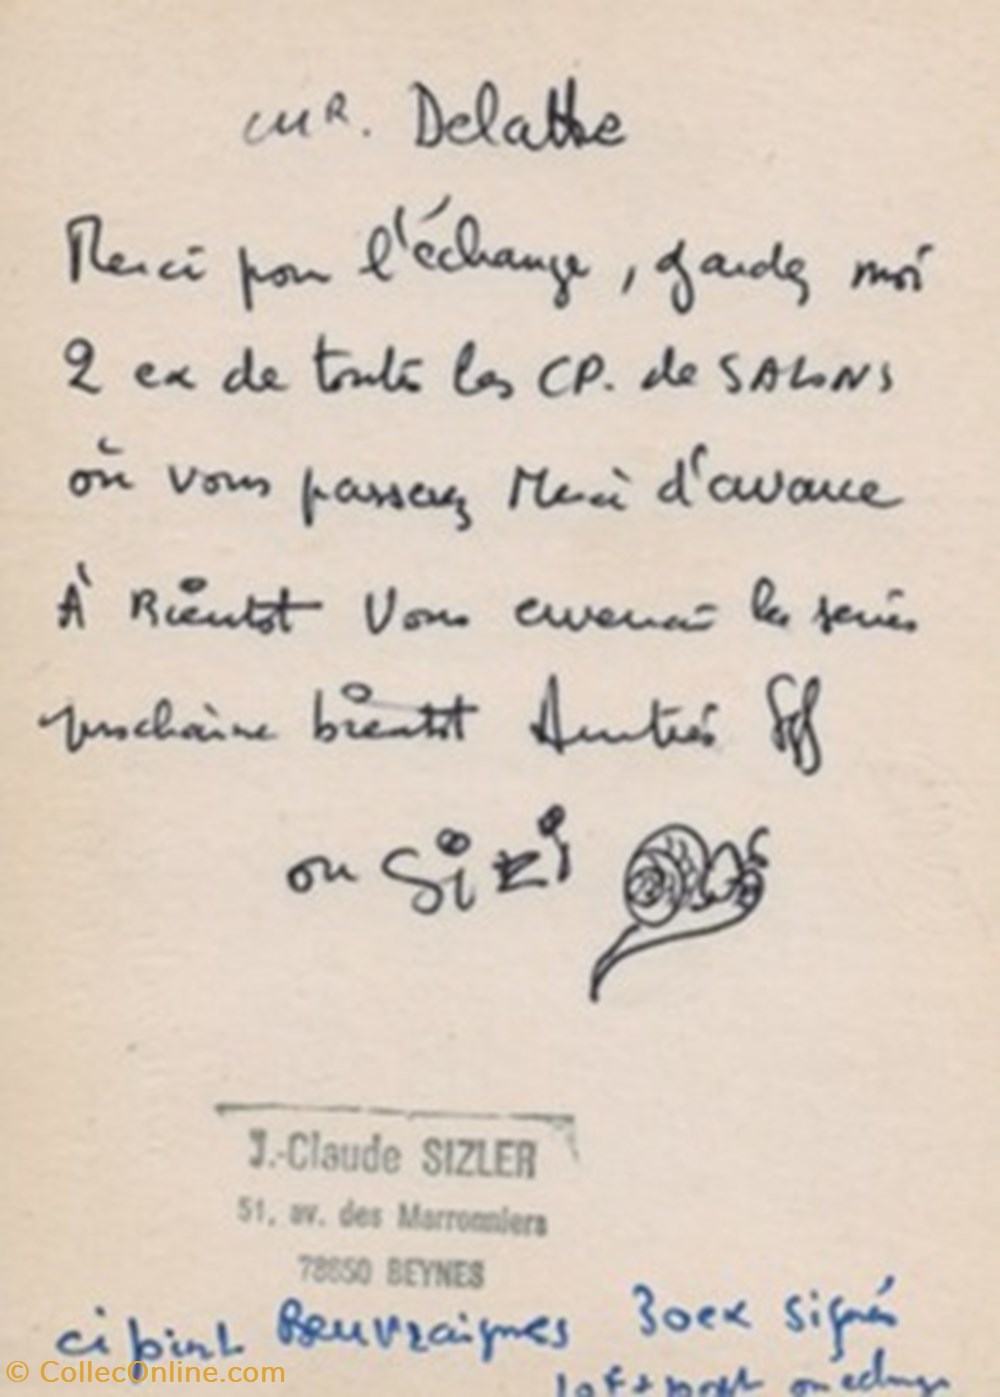 MR. Delattre
Merci pour l'échange, gardez moi
2 ex de toutes les CP. de SALONS
où vous passerez Merci d'avance
À Bientôt Vous enverrai les series
prochaine bientôt Amitiés
ou Sizi
J.-Claude SIZLER
51, av. des Marronniers
78650 BEYNES
ci joint Beuvraignes 30ex signés
10F + port ou echange
© CollecOnline.com